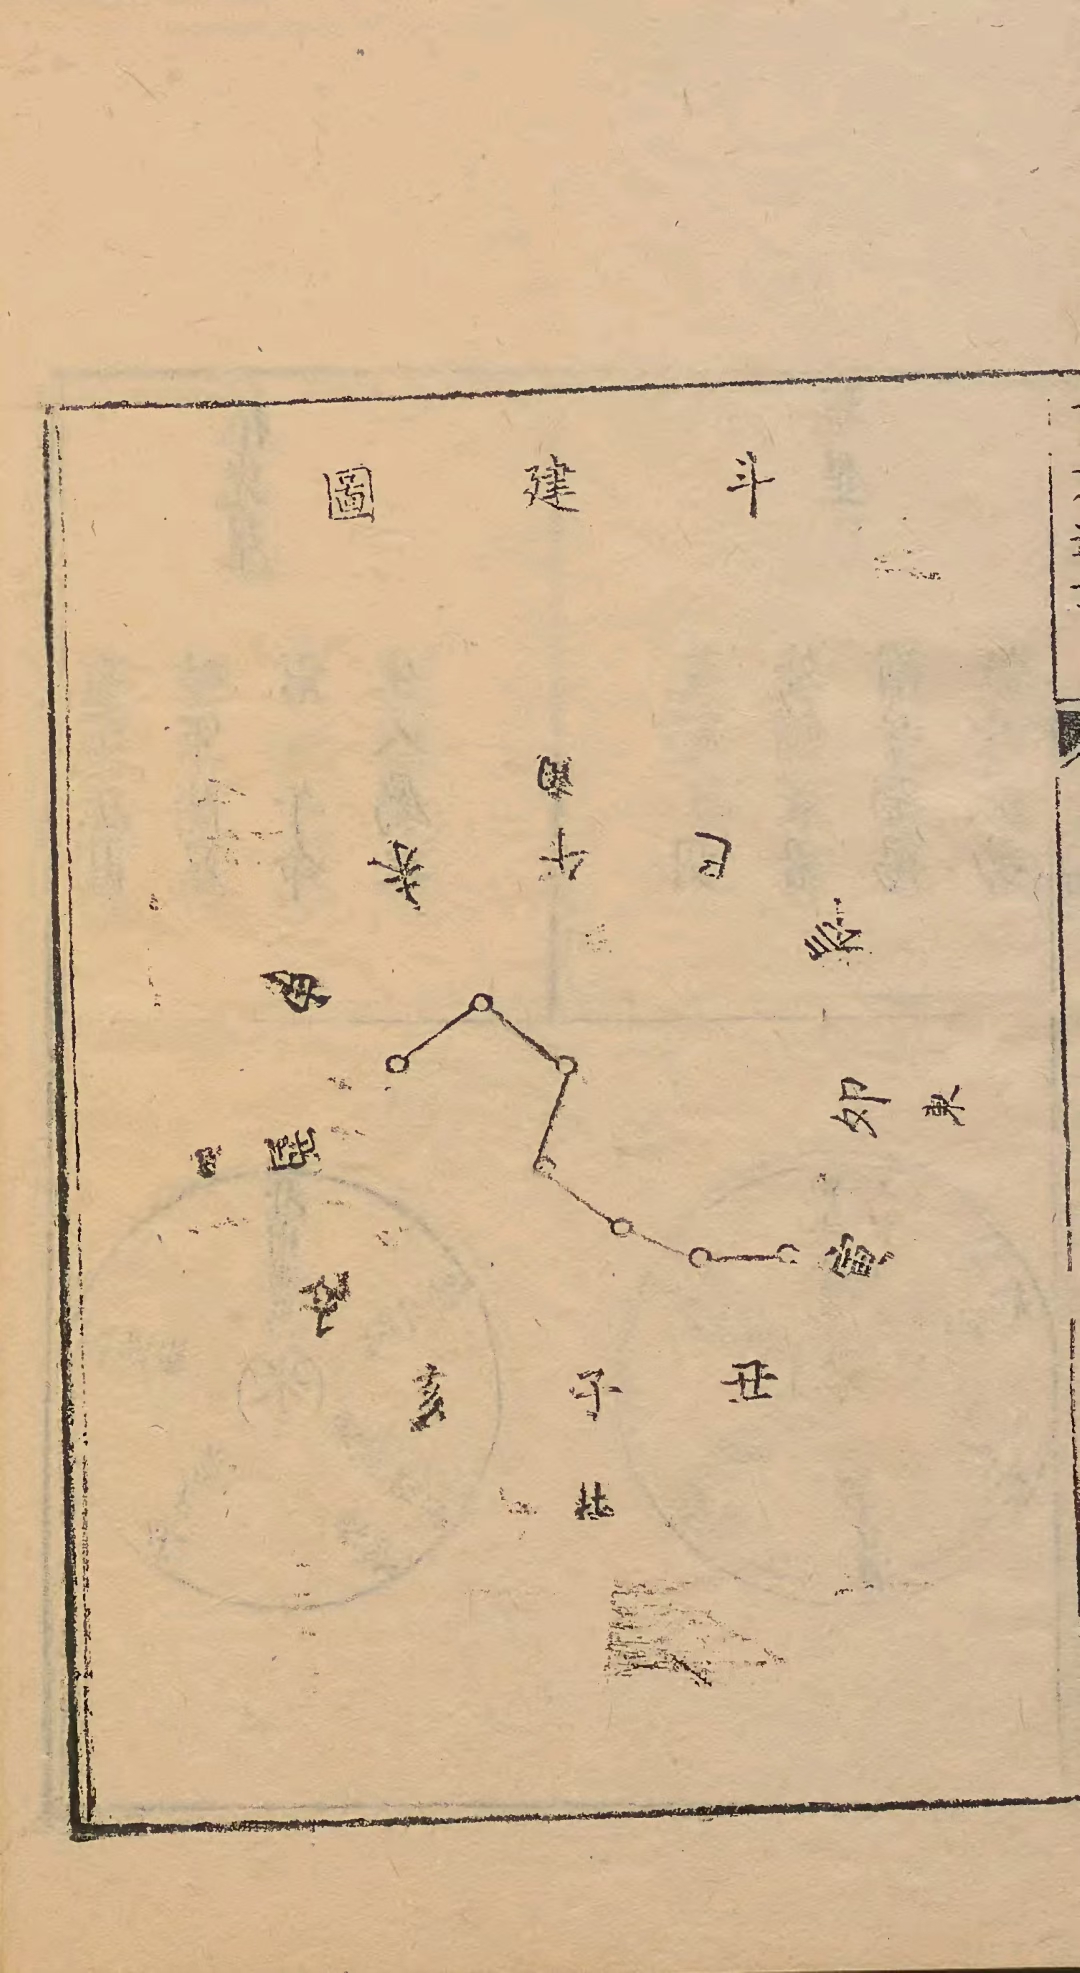 斗建圖
南
午
巳
辰
卯
東
寅
丑
子
北
亥
戌
酉
申
未